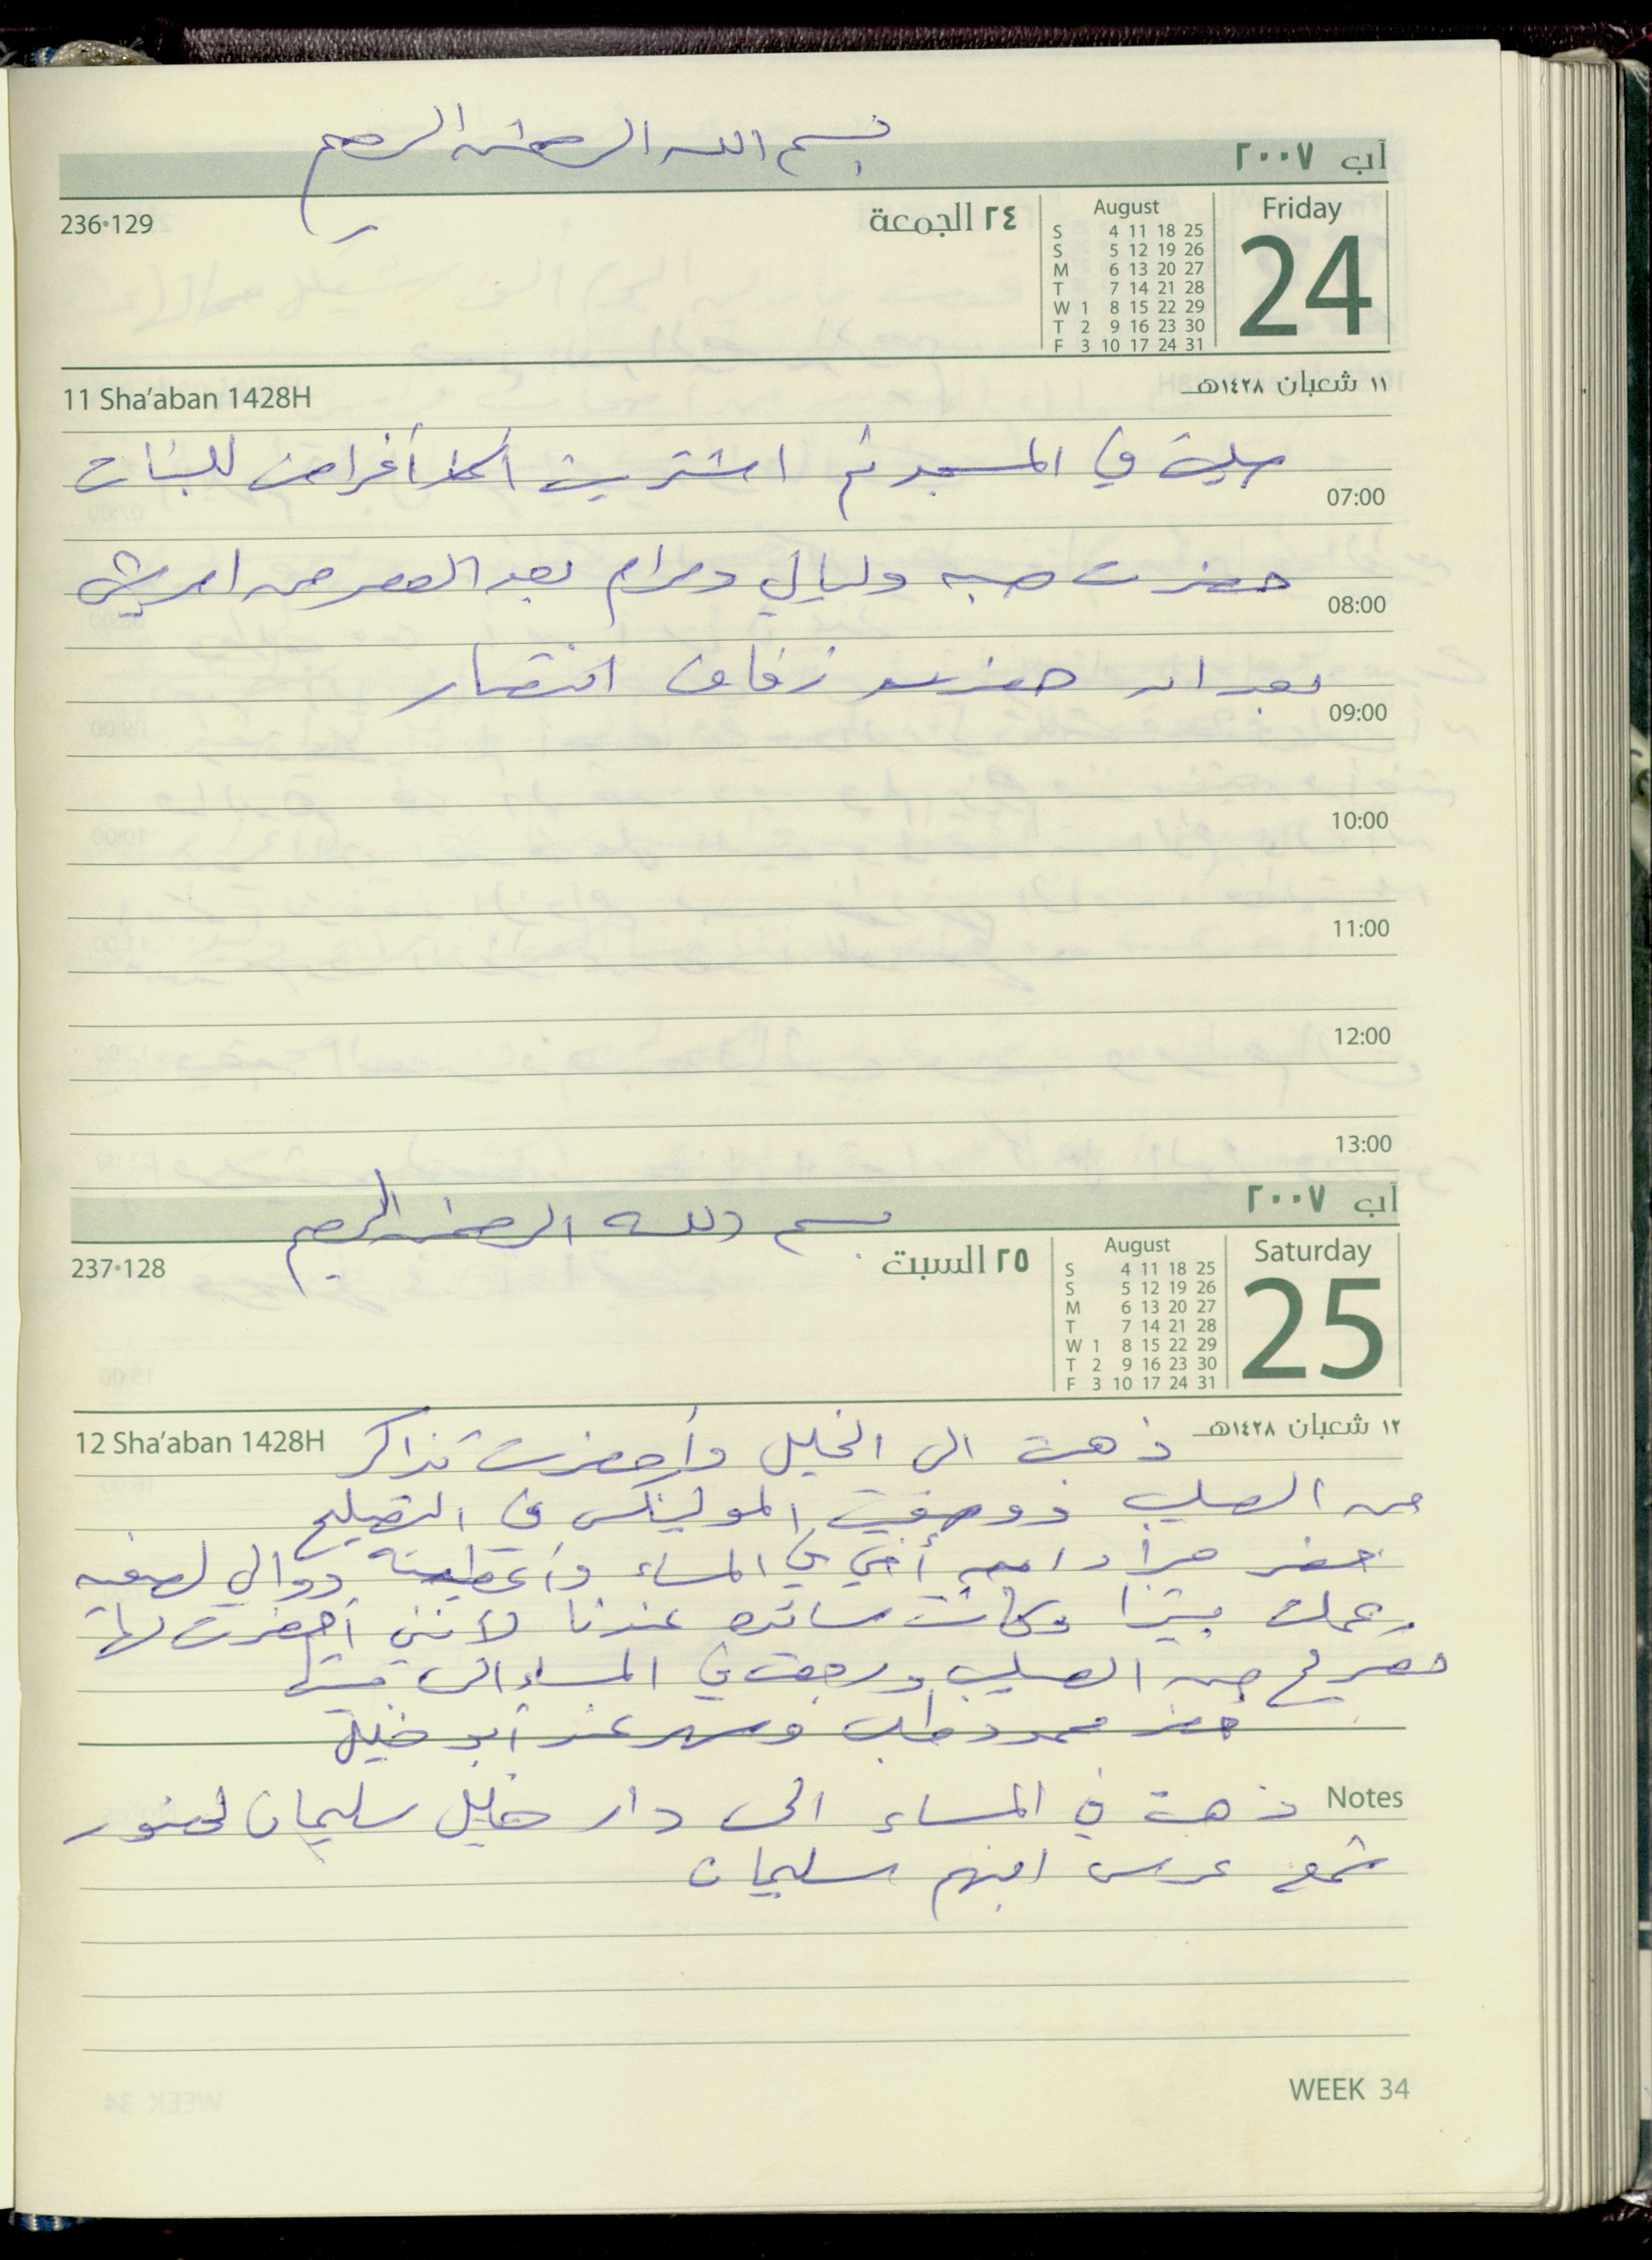 بسم الله الرحمن الرحيم
آب ٢٠٠٧
236•129
٢٤ الجمعة
August
S 4 11 18 25
S 5 12 19 26
M 6 13 20 27
T 7 14 21 28
W 1 8 15 22 29
T 2 9 16 23 30
F 3 10 17 24 31
Friday
24
11 Sha'aban 1428H
١١ شعبان ١٤٢٨هـ
صليت في المسجد ثم اشتريت أغراض للبنات
07:00
حضرت هبه وليالي ومرام بعد العصر من
08:00
بعد ان حضرت زفاف انتصار
09:00
10:00
11:00
12:00
13:00
بسم الله الرحمن الرحيم
آب ٢٠٠٧
237•128
٢٥ السبت
August
S 4 11 18 25
S 5 12 19 26
M 6 13 20 27
T 7 14 21 28
W 1 8 15 22 29
T 2 9 16 23 30
F 3 10 17 24 31
Saturday
25
12 Sha'aban 1428H
١٢ شعبان ١٤٢٨هـ
ذهبت الى الخليل وأحضرت تذاكر
من الصليب ووضعت المولينكس في التصليح
حضر أخي في المساء وأعطيته دوالي لصفيه
وعملت بيتزا وكانت سائده عندنا لأنني أحضرت لها
تصريح من الصليب ورجعت في المساء الى بيتها
حضر محمود طلب وسهر عند أبو خليل
Notes
ذهبت في المساء الى دار خليل سليمان لحضور
شمع عرس ابنهم سليمان
WEEK 34